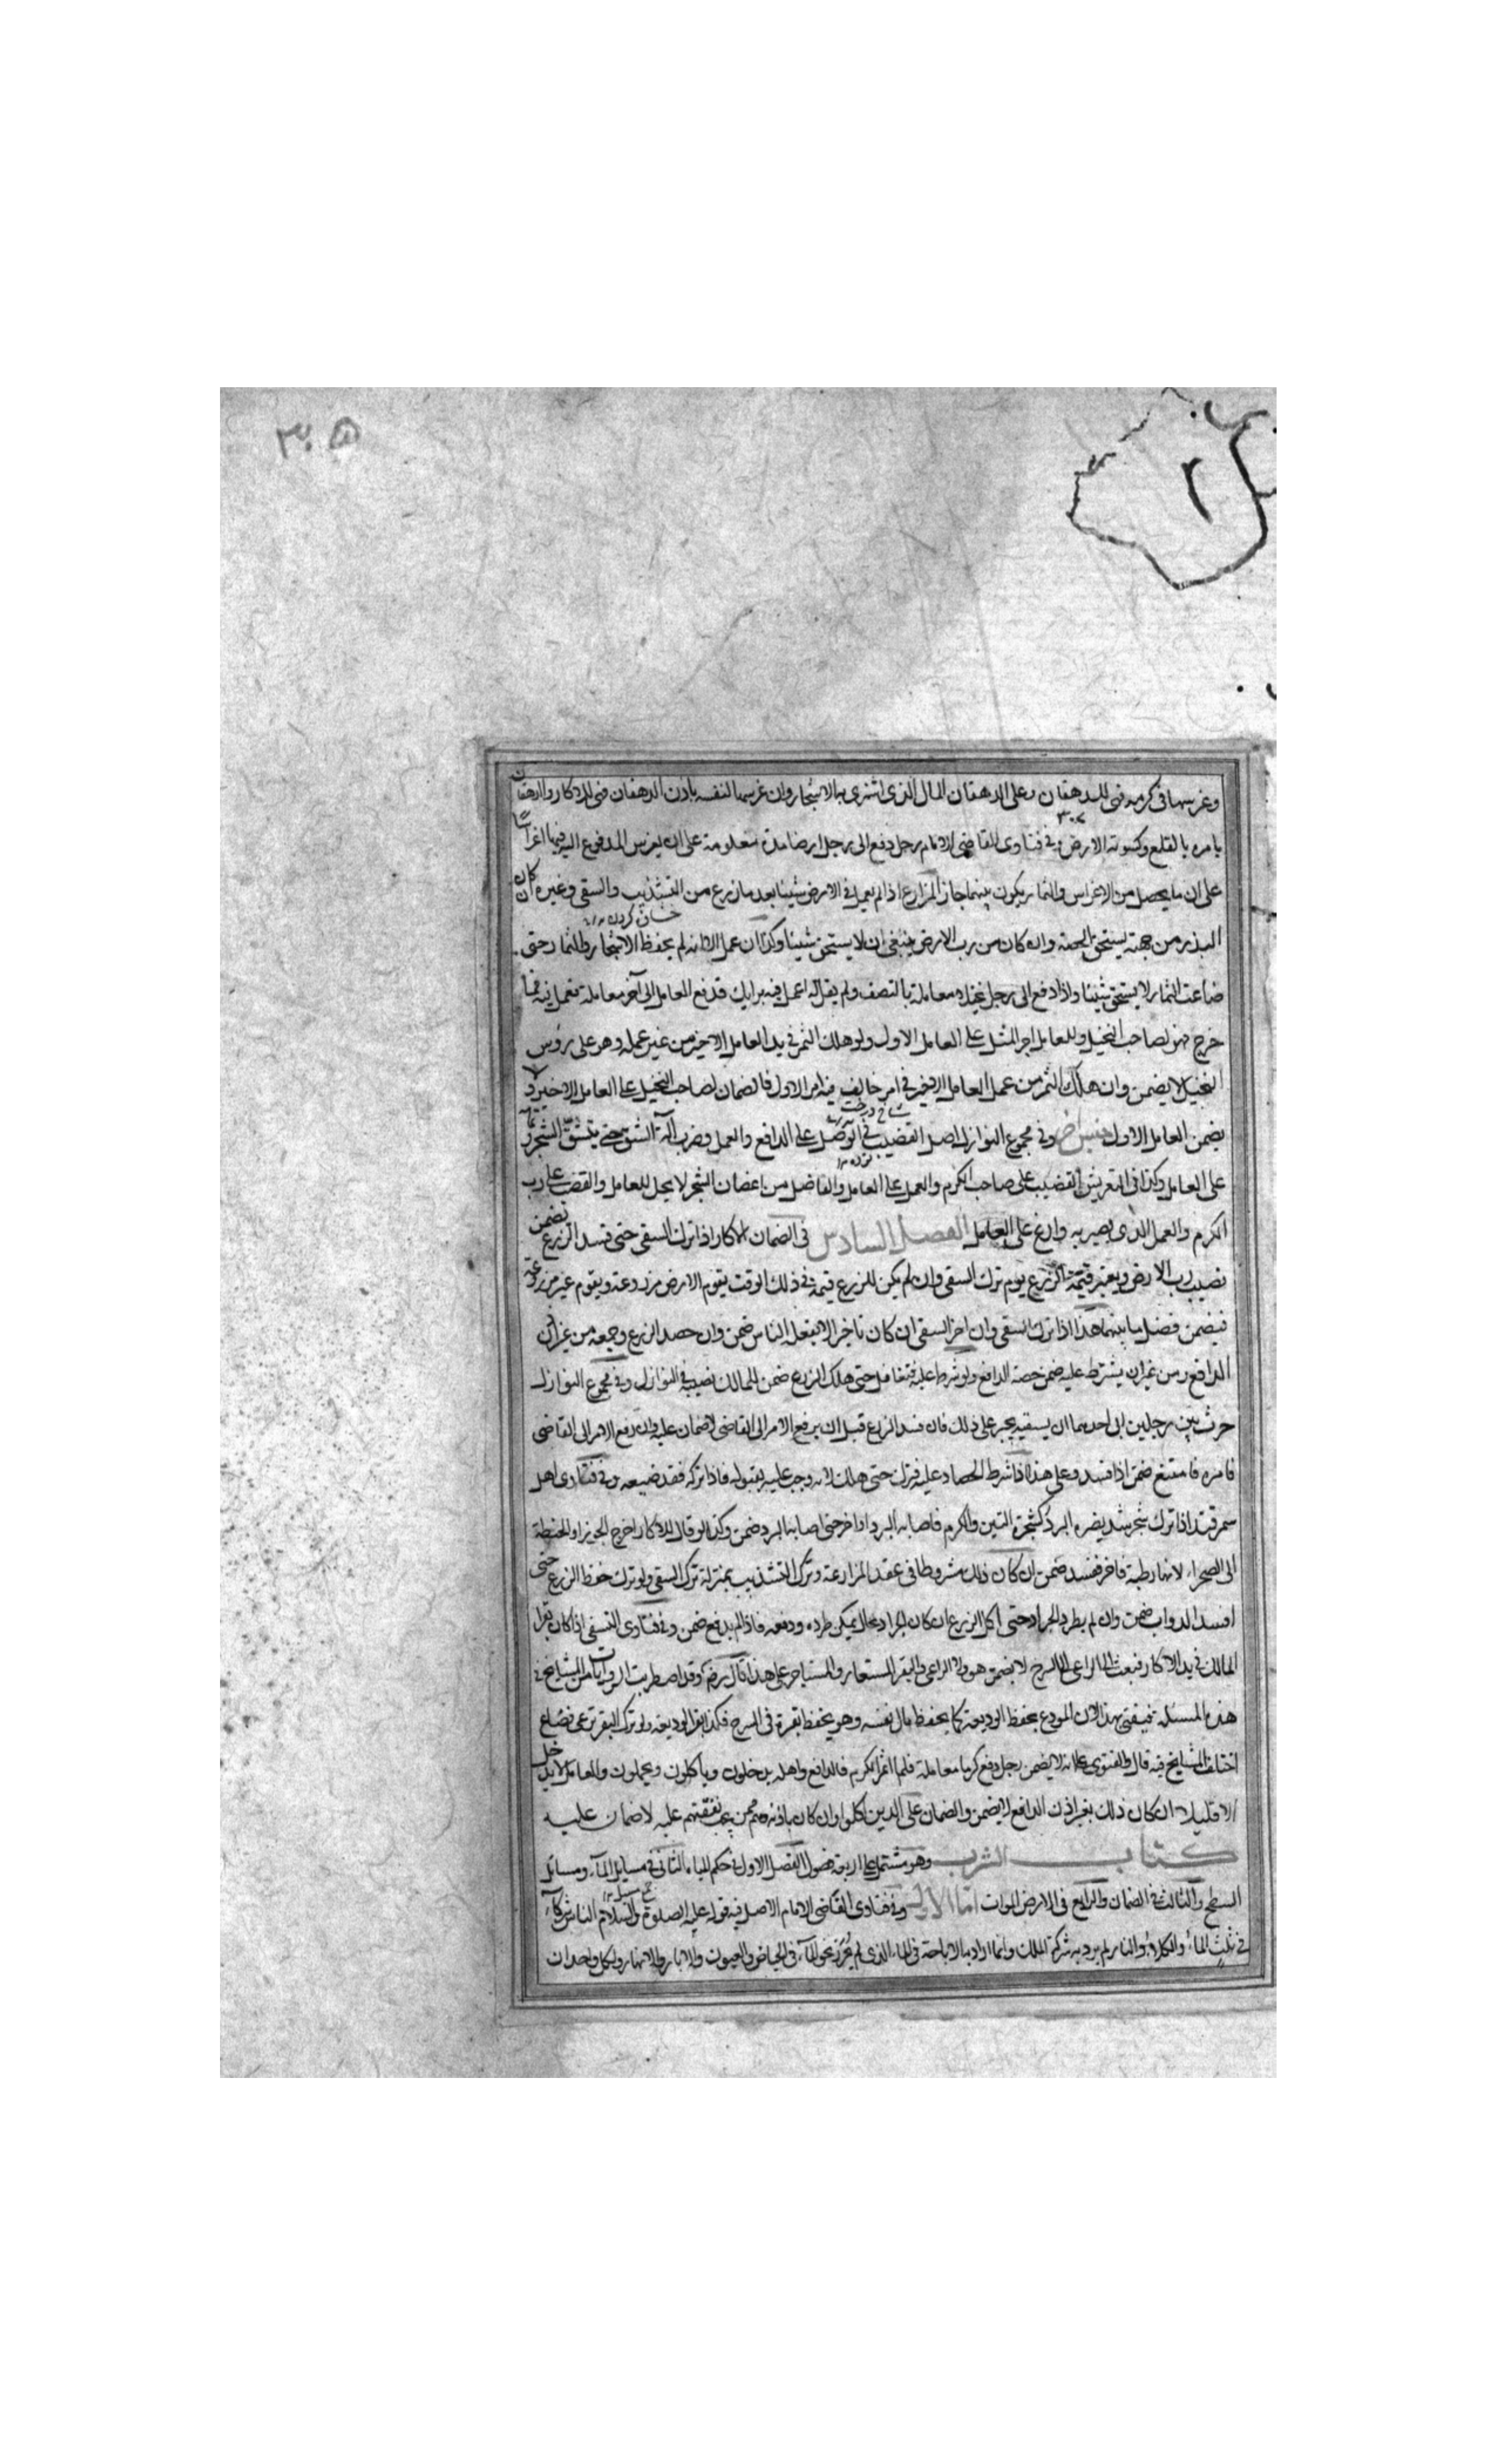 ٣٠٥
وغرسها في كرمه فهي للدهقان وعلى الدهقان المال الذي اشترى به الاشجار وان غرسها لنفسه باذن الدهقان فهي للاكار والدهقان
يامره بالقلع وتسوية الارض وفي فتاوى القاضي الامام رجل دفع الى رجل ارضا مدة معلومة على ان يغرس المدفوع اليه فيها اغراسا
على ان ما يحصل من الاغراس والثمار يكون بينهما جاز المزارع اذا لم يعمل في الارض شيئا بعد ما زرع من التشذيب والسقي وغيره ان كان
البذر من جهته يستحق الحصة وان كان من رب الارض ينبغي ان لا يستحق شيئا وكذا ان عمل الا انه لم يحفظ الاشجار والثمار حتى
ضاعت الثمار لا يستحق شيئا واذا دفع الى رجل نخيله معاملة بالنصف ولم يقل له اعمل فيه برايك فدفع العامل الى آخر معاملة فعمل فيه فما
خرج فهو لصاحب النخيل وللعامل اجر المثل على العامل الاول ولو هلك الثمر في يد العامل الاخير من غير عمله وهو على رؤس
النخيل لا يضمن وان هلك الثمر من عمل العامل الاخير في امر خالف فيه امر الاول فالضمان لصاحب النخيل على العامل الاخير ولا
يضمن العامل الاول جنس آخر وفي مجموع النوازل اصل القضيب في التوصل على الدافع والعمل وضرب آلة الشق حتى يشق الشجر
على العامل وكذا في التعريش القضيب على صاحب الكرم والعمل على العامل والفاضل من اغصان الشجر لا يحل للعامل والقضب على رب
الكرم والعمل الذي يصير به على العامل الفصل السادس في الضمان الاكار اذا ترك السقي حتى فسد الزرع تضمن
نصيب رب الارض ويعتبر قيمة الزرع يوم ترك السقي وان لم يكن للزرع قيمة في ذلك الوقت يقوم الارض مزروعة ويقوم غير مزروعة
فيضمن فضل ما بينهما هذا اذا ترك السقي وان اخر السقي ان كان تاخيرا لا يفعله الناس ضمن وان حصد الزرع وجمعه من غير اذن
الدافع ومن غير ان يشترط عليه ضمن حصة الدافع ولو شرط عليه فتغافل حتى هلك الزرع ضمن للمالك نصيبه في النوازل وفي مجموع النوازل
حرث بين رجلين ابى احدهما ان يسقيه يجبر على ذلك فان فسد الزرع قبل ان يرفع الامر الى القاضي لا ضمان عليه وان رفع الامر الى القاضي
فامره فامتنع ضمن اذا فسد وعلى هذا اذا شرط الحصاد عليه فترك حتى هلك لانه وجب عليه بقبوله فاذا تركه فقد ضيعه وفي فتاوى اهل
سمرقند اذا ترك شجر يضره البرد كشجرة التين والكرم فاصابه البرد حتى اصابها البرد ضمن وكذا لو قال للاكار اخرج او الحنطة
الى الصحراء لانها رطبة فاخر ففسد ضمن ان كان ذلك مشروطا في عقد المزارعة وترك التشذيب بمنزلة ترك السقي ولو ترك حفظ الزرع حتى
افسد الدواب ضمن وان لم يطرد الجراد حتى اكل الزرع ان كان الجراد بحال يمكن طرده ودفعه فاذا لم يدفع ضمن وفي فتاوى النسفي اذا كان بقر
المالك في يد الاكار فبعث الى الراعي الى السرح لا يضمن هو ولا الراعي والبقر المستعار والمستاجر على هذا قال رضه وقد اضطربت الروايات من المشايخ في
هذه المسئلة فيفتى بهذا لان المودع يحفظ الوديعة كما يحفظ مال نفسه وهو يحفظ بقره في السرح فكذا بقر الوديعة ولو ترك البقر ترعى فضاع
اختلف المشايخ فيه قال والفتوى على انه لا يضمن رجل دفع كرما معاملة فلما اثمر الكرم فالدافع واهله يدخلون وياكلون ويحملون والعامل لا يدخل
الا قليلا ان كان ذلك بغير اذن الدافع لا يضمن والضمان على الذين اكلوا وان كان باذنه وهم ممن يجب نفقتهم عليه لا ضمان عليه
كتاب الشرب وهو مشتمل على اربعة فصول الفصل الاول في حكم المياه والثاني في مسايل الماء ومسائل
السطح والثالث في الضمان والرابع في الارض الموات اما الاول وفي فتاوى القاضي الامام الاصل فيه قوله عليه الصلوة والسلام الناس شركاء
في ثلث الماء والكلاء والنار لم يرد به شركة الملك وانما اراد به الاباحة في الماء الذي لم يحرز نحو الماء في الحياض والعيون والابار والانهار ولكل واحد ان